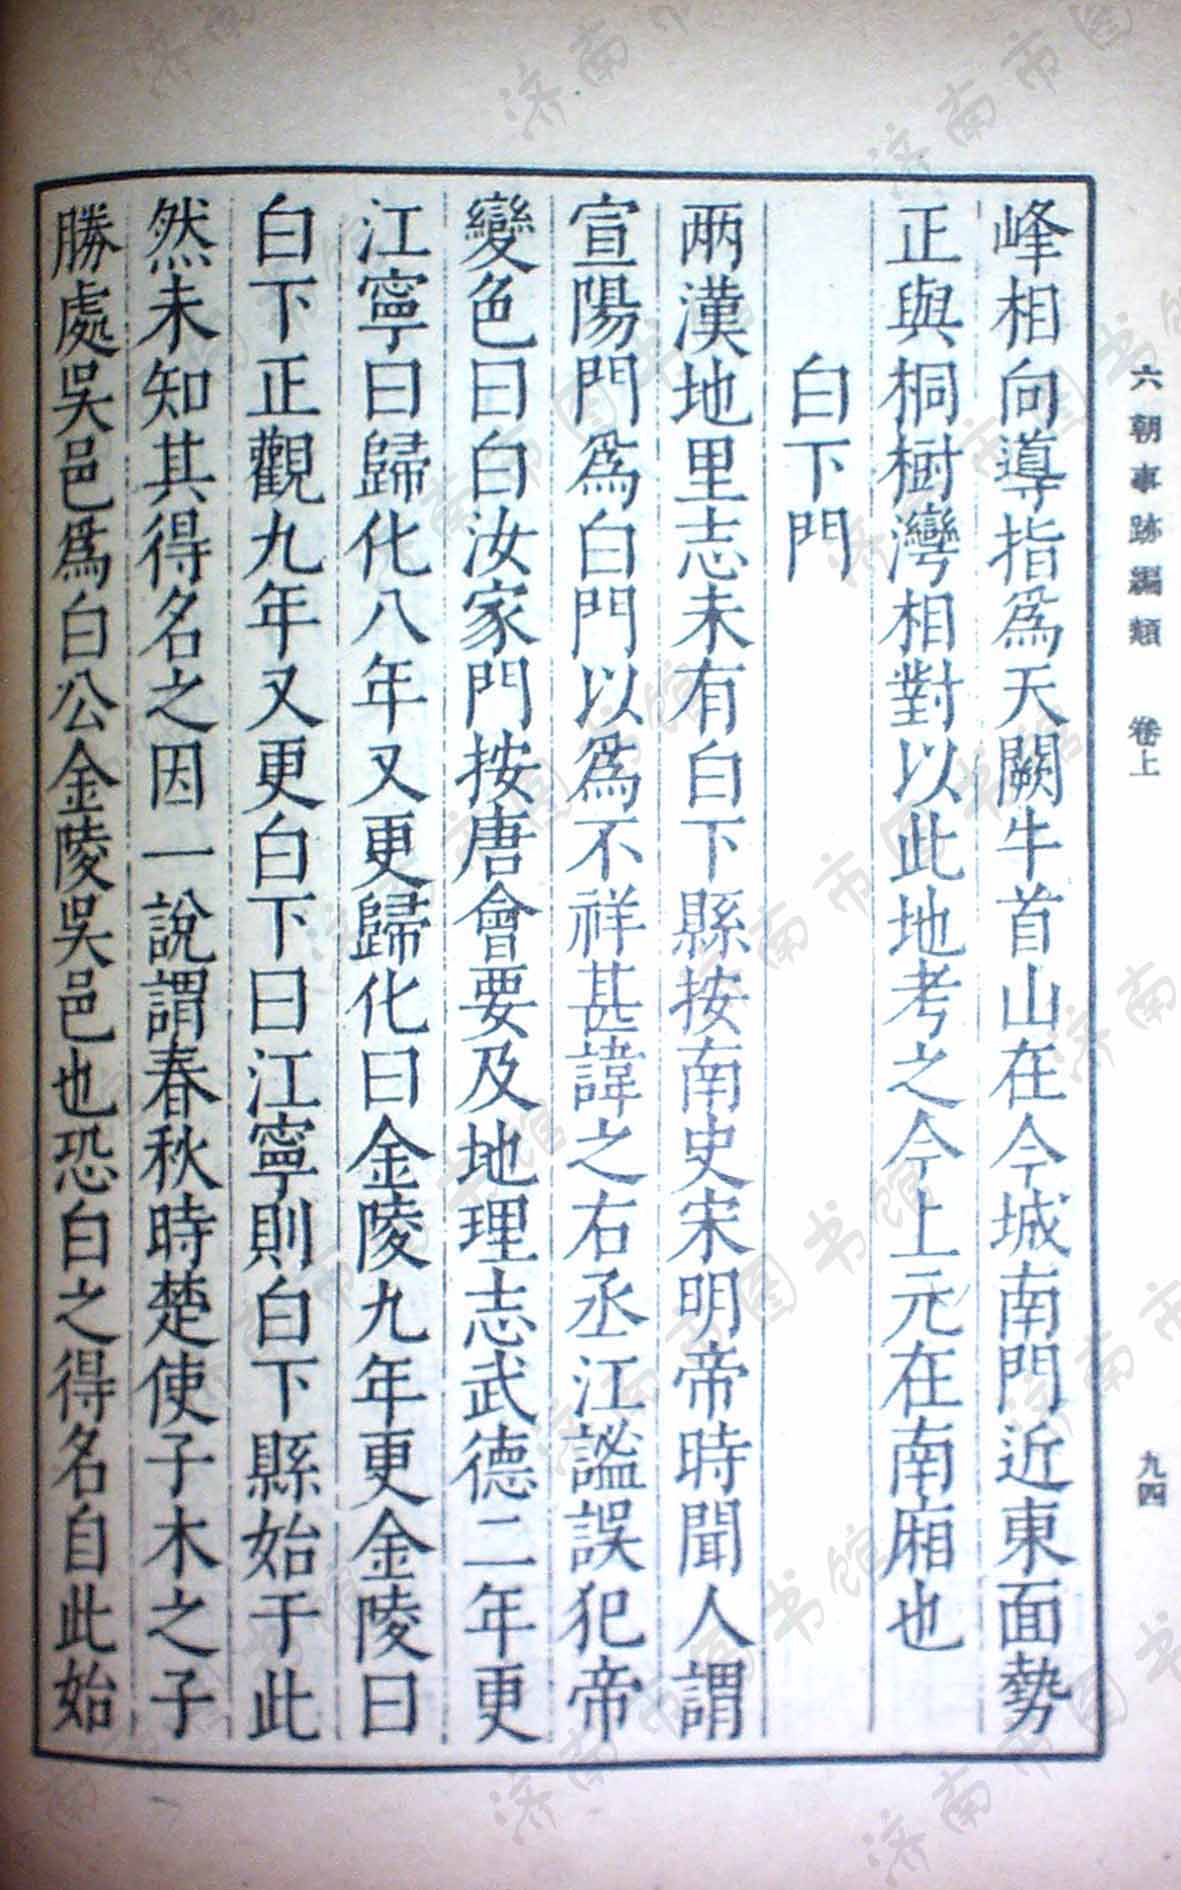 六朝事跡編類　卷上
九四
峰相向導指爲天闕牛首山在今城南門近東面勢
正與桐樹灣相對以此地考之今上元在南廂也
白下門
兩漢地里志未有白下縣按南史宋明帝時聞人謂
宣陽門爲白門以爲不祥甚諱之右丞江謐誤犯帝
變色曰白汝家門按唐會要及地理志武德二年更
江寧曰歸化八年又更歸化曰金陵九年更金陵曰
白下正觀九年又更白下曰江寧則白下縣始于此
然未知其得名之因一說謂春秋時楚使子木之子
勝處吳邑爲白公金陵吳邑也恐白之得名自此始
济南市图书馆